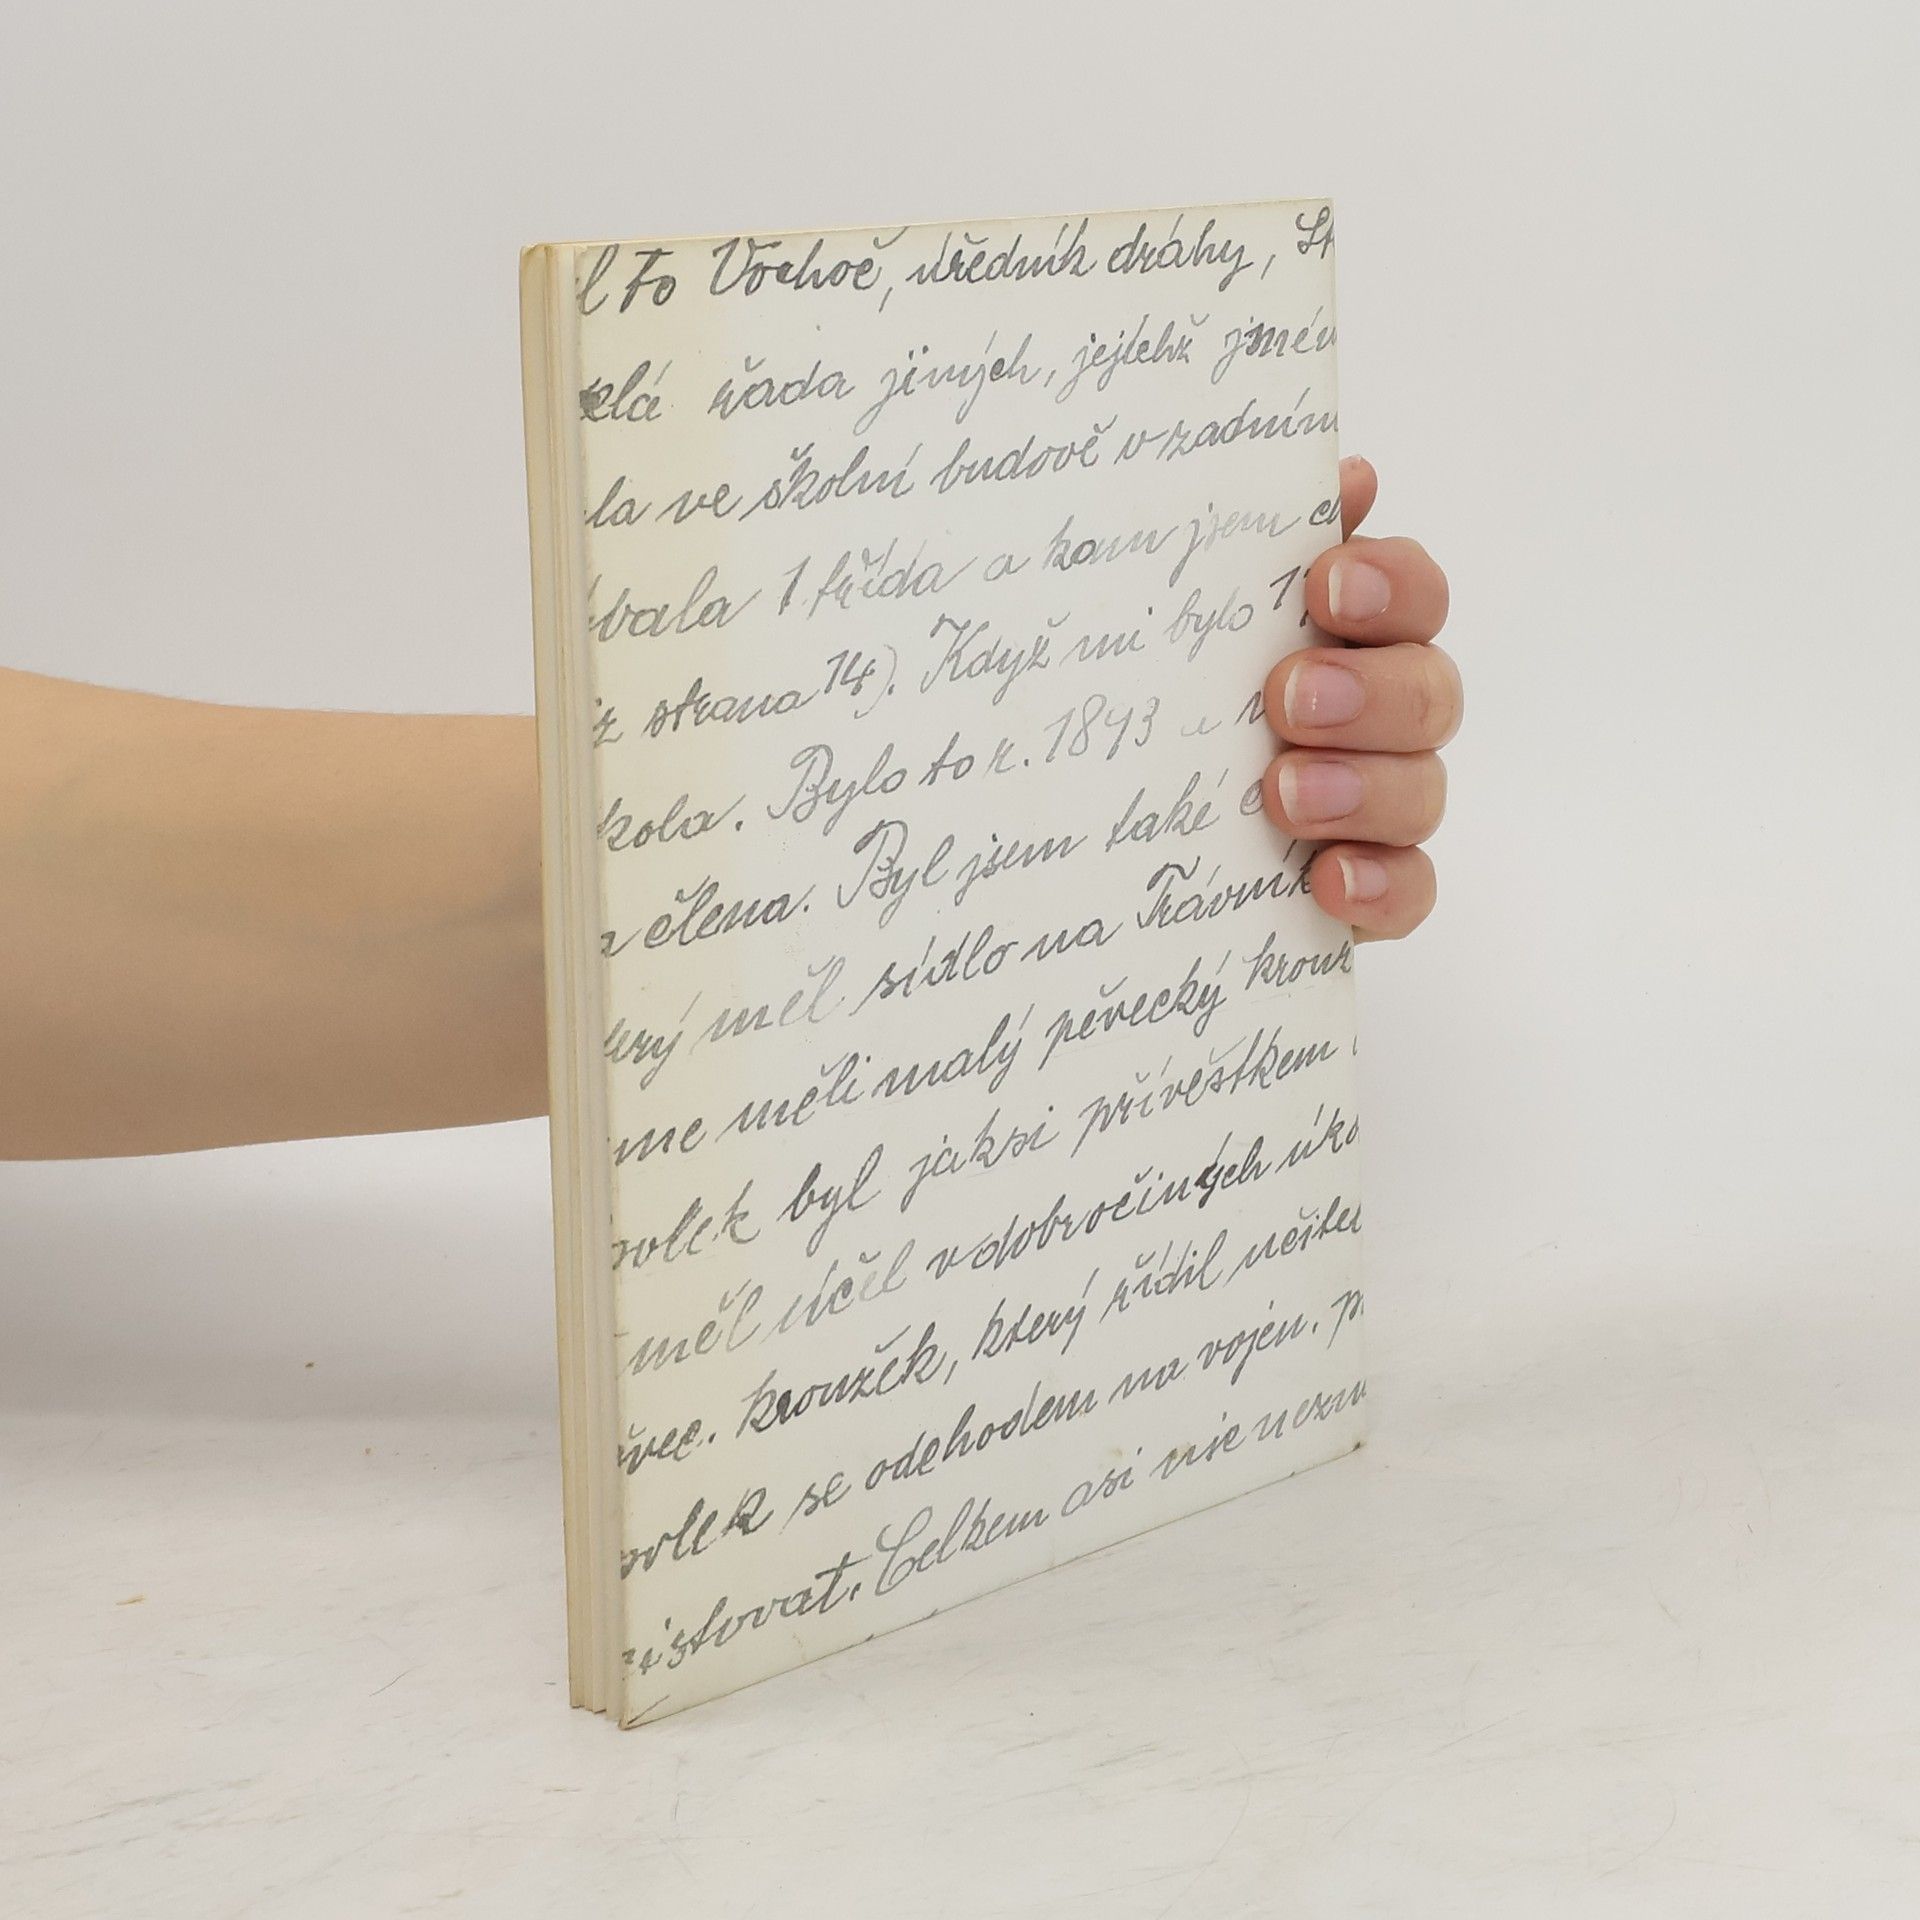 l to Vochoč, úředník dráhy, St
elá řada jiných, jejichž jmén
la ve školní budově v zadním
vala 1 třída a kam jsem ch
z strana 14). Když mi bylo 17
kola. Bylo to r. 1893 a v
a člena. Byl jsem také č
erý měl sídlo na Trávník
me měli malý pěvecký krouž
olek byl jaksi přívěškem
měl účel v dobročiných úko
vec. kroužek, který řídil učitel
olek se odchodem na vojen. p
istovat. Celkem asi nic nezn